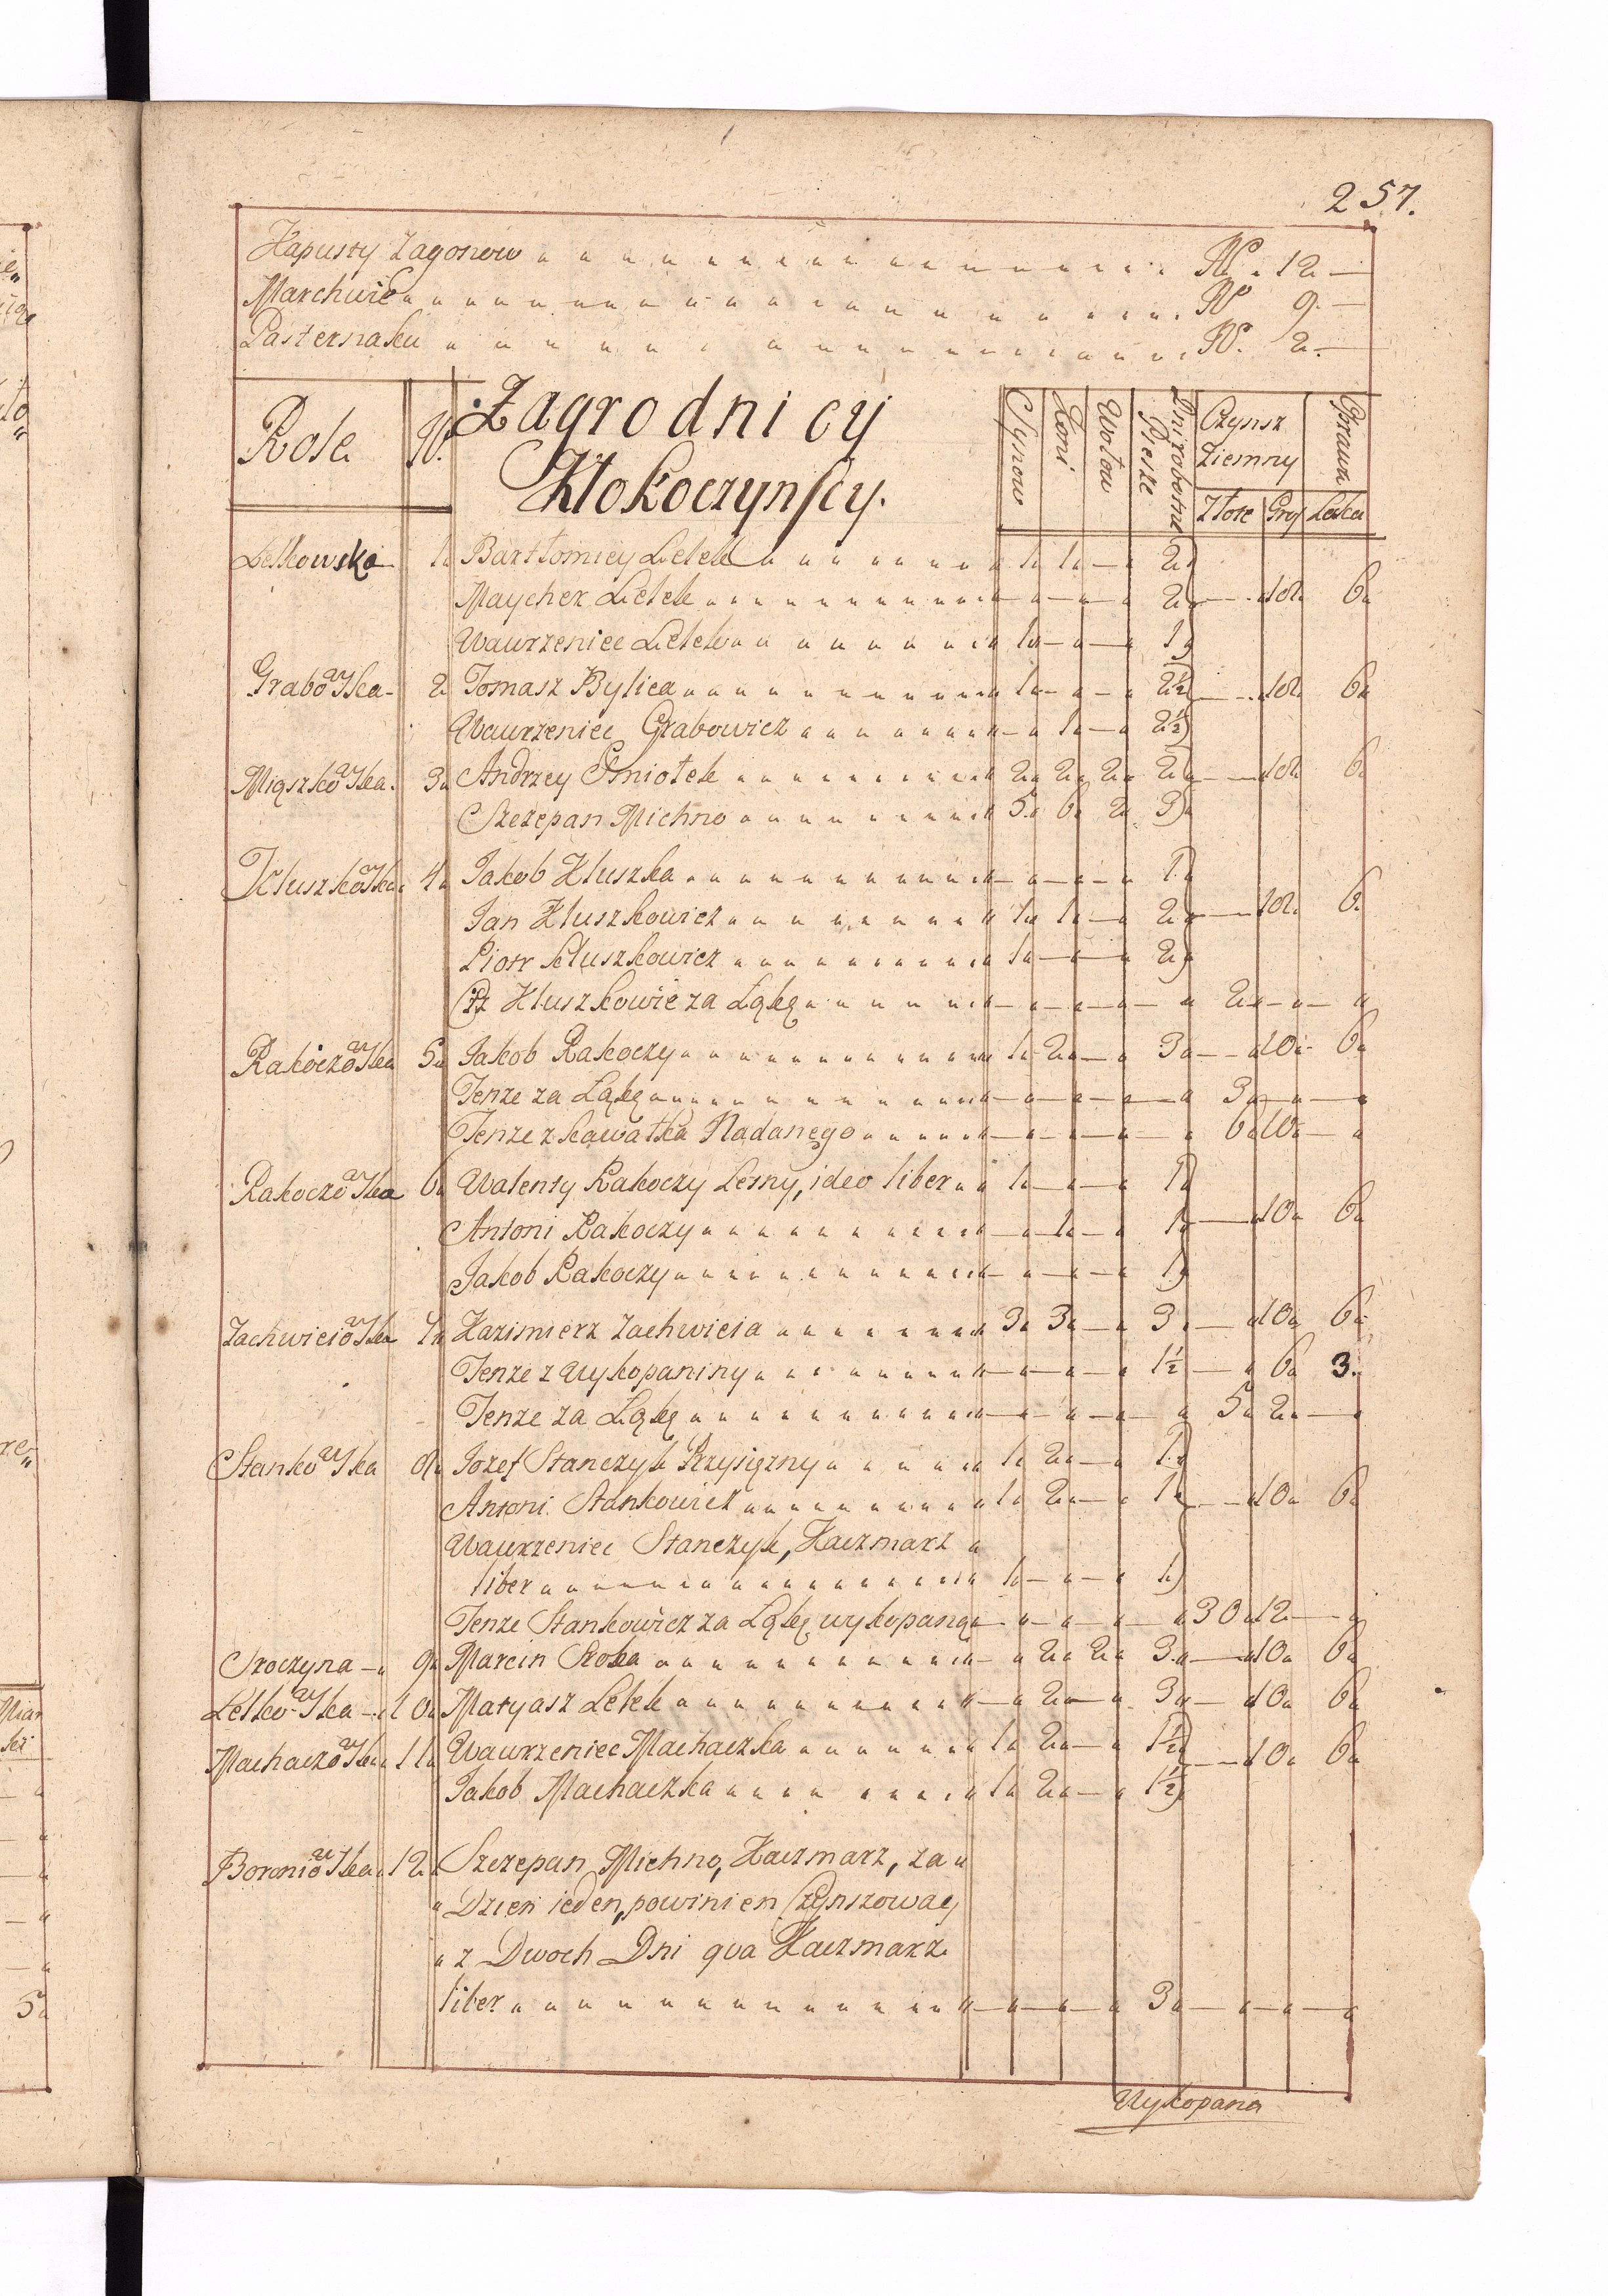 257.
Kapusty Zagonow " " " " No. 12 —
Marchwie " " " " No 9. —
Pasternaku " " " " No. 2. —
Role N. Zagrodnicy Kłokoczynscy. Synow Koni Wołow Dni robotne Piesze Czynsz Ziemny Złote Gro[sz] Oprawa Łokci
Lelkowska 1. Bartłomiey Lelek 1 1 — 2
Maycher Lelek — — — 2 — 10 6
Wawrzeniec Lelek 1 — — 1
Grabowska 2 Tomasz Bylica 1 — — 2½ — 10 6
Wawrzeniec Grabowicz — 1 — 2½
Miąszkowska 3 Andrzey Smiołek 2 2 2 2 — 10 6
Szczepan Michno 5 6 2 3
Kluszkowska 4 Jakob Kluszka — — — 1
Jan Kluszkowicz 1 1 — 2 — 10 6
Piotr Kluszkowicz 1 — — 2
Kluszkowie za Łąkę — — — — 2 — —
Rakoczowska 5 Jakob Rakoczy 1 2 — 3 — 10 6
Tenze za Łąkę — — — — 3 — —
Tenze z kawałka Nadanego — — — — 6 10 —
Rakoczowska 6 Walenty Rakoczy Lesny, ideo liber 1 — — 1
Antoni Rakoczy — 1 — 1 — 10 6
Jakob Rakoczy — — — 1
Zachwiciowska 7 Kazimierz Zachwicia 3 3 — 3 — 10 6
Tenze z Wykopaniny — — — 1½ — 6 3.
Tenze za Łąkę — — — — 5 2 —
Stankowska 8 Jozef Stanczyk Przysięzny 1 2 — 1
Antoni Stankowicz 1 2 — 1 — 10 6
Wawrzeniec Stanczyk, Kaczmarz
liber 1 — — 1
Tenze Stankowicz za Łąkę wykopaną — — — — 30 12 —
Sroczyna 9 Marcin Sroka — 2 2 3 — 10 6
Lelkowska 10 Matyasz Lelek — 2 — 3 — 10 6
Machaczowska 11 Wawrzeniec Machaczka 1 2 — 1½ — 10 6
Jakob Machaczka 1 2 — 1½
Boroniowska 12 Szczepan Michno, Kaczmarz, za
" Dzien ieden, powinien Czynszowac
" z Dwoch Dni qva Kaczmarz
liber — — — 3 — — —
Wykopana